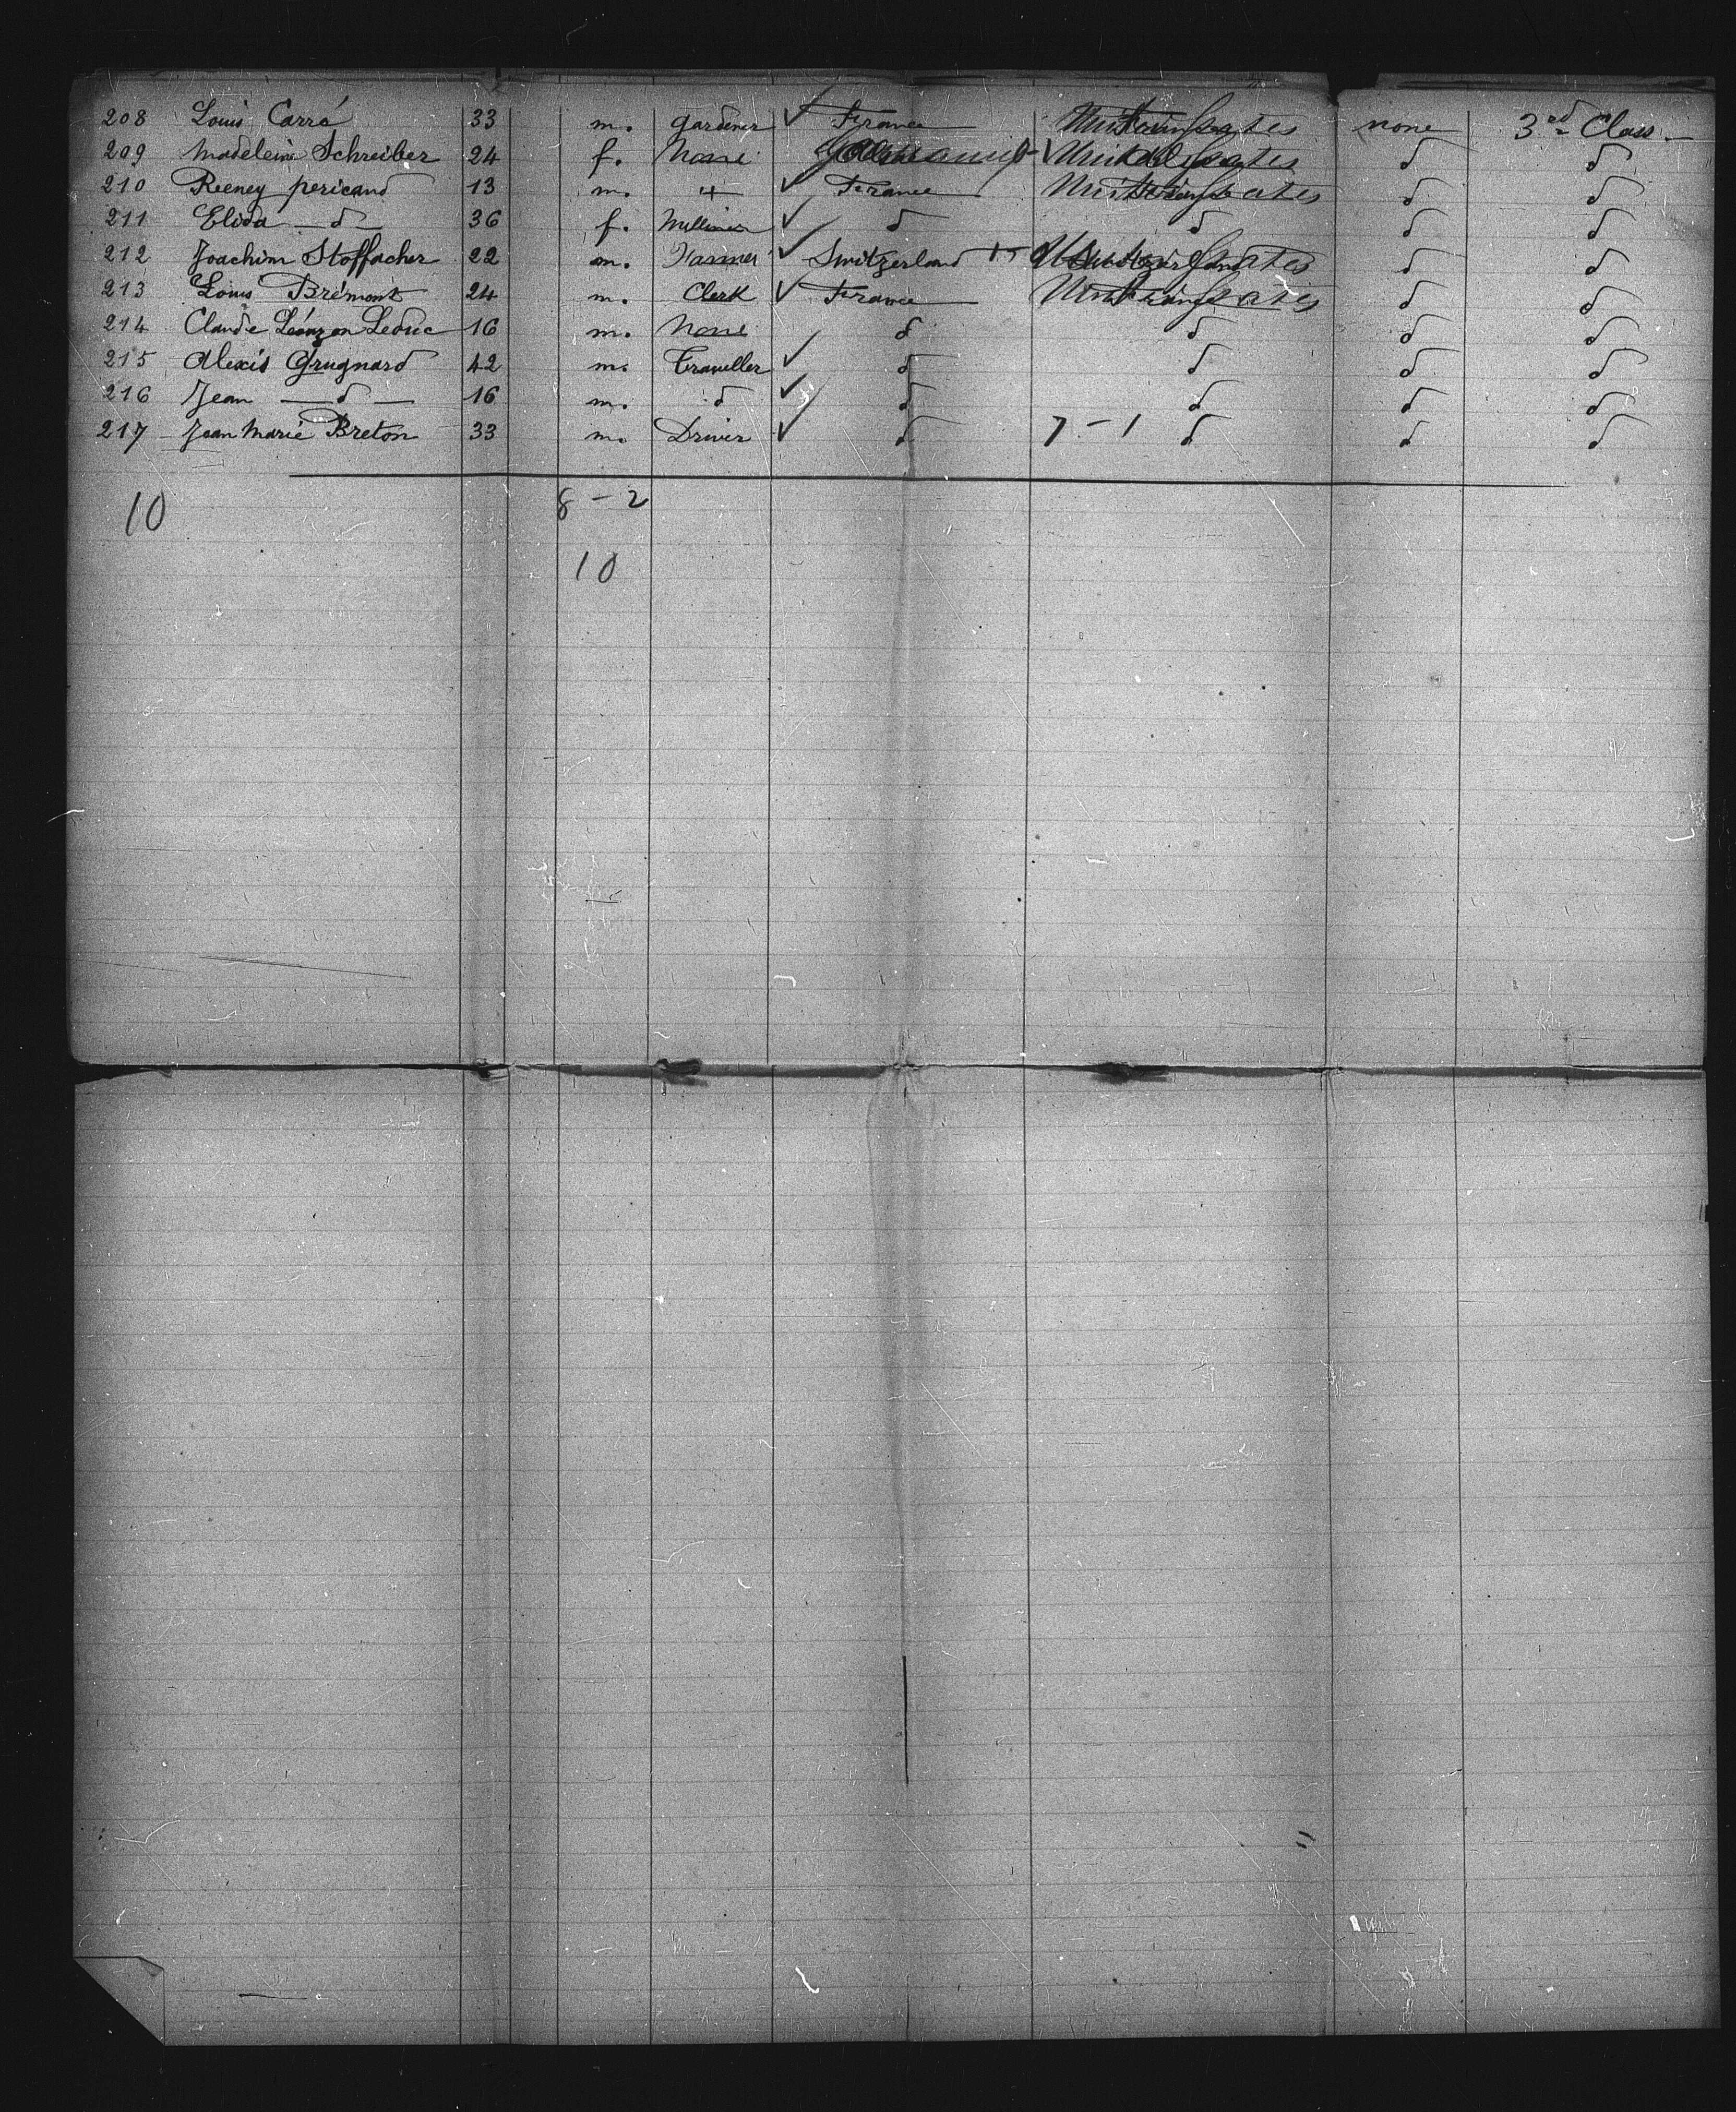 208 Louis Carré 33 m. gardener ✓ France United States none 3rd Class
209 Madeleine Schreiber 24 f. None Germany ✓ United States d d
210 Reeney pericand 13 m. ✓ France United States d d
211 Elida — d — 36 f. Milliner ✓ d d d d
212 Joachim Stoffacher 22 m. Farmer ✓ Switzerland United States d d
213 Louis Brémont 24 m. Clerk ✓ France United States d d
214 Claude Leduc 16 m. None d d d d
215 Alexis Grugnard 42 m. Traveller ✓ d d d d
216 Jean — d — 16 m. d ✓ d d d d
217 Jean Marie Breton 33 m. Driver ✓ d 7 - 1 d d d
10 8 - 2
10